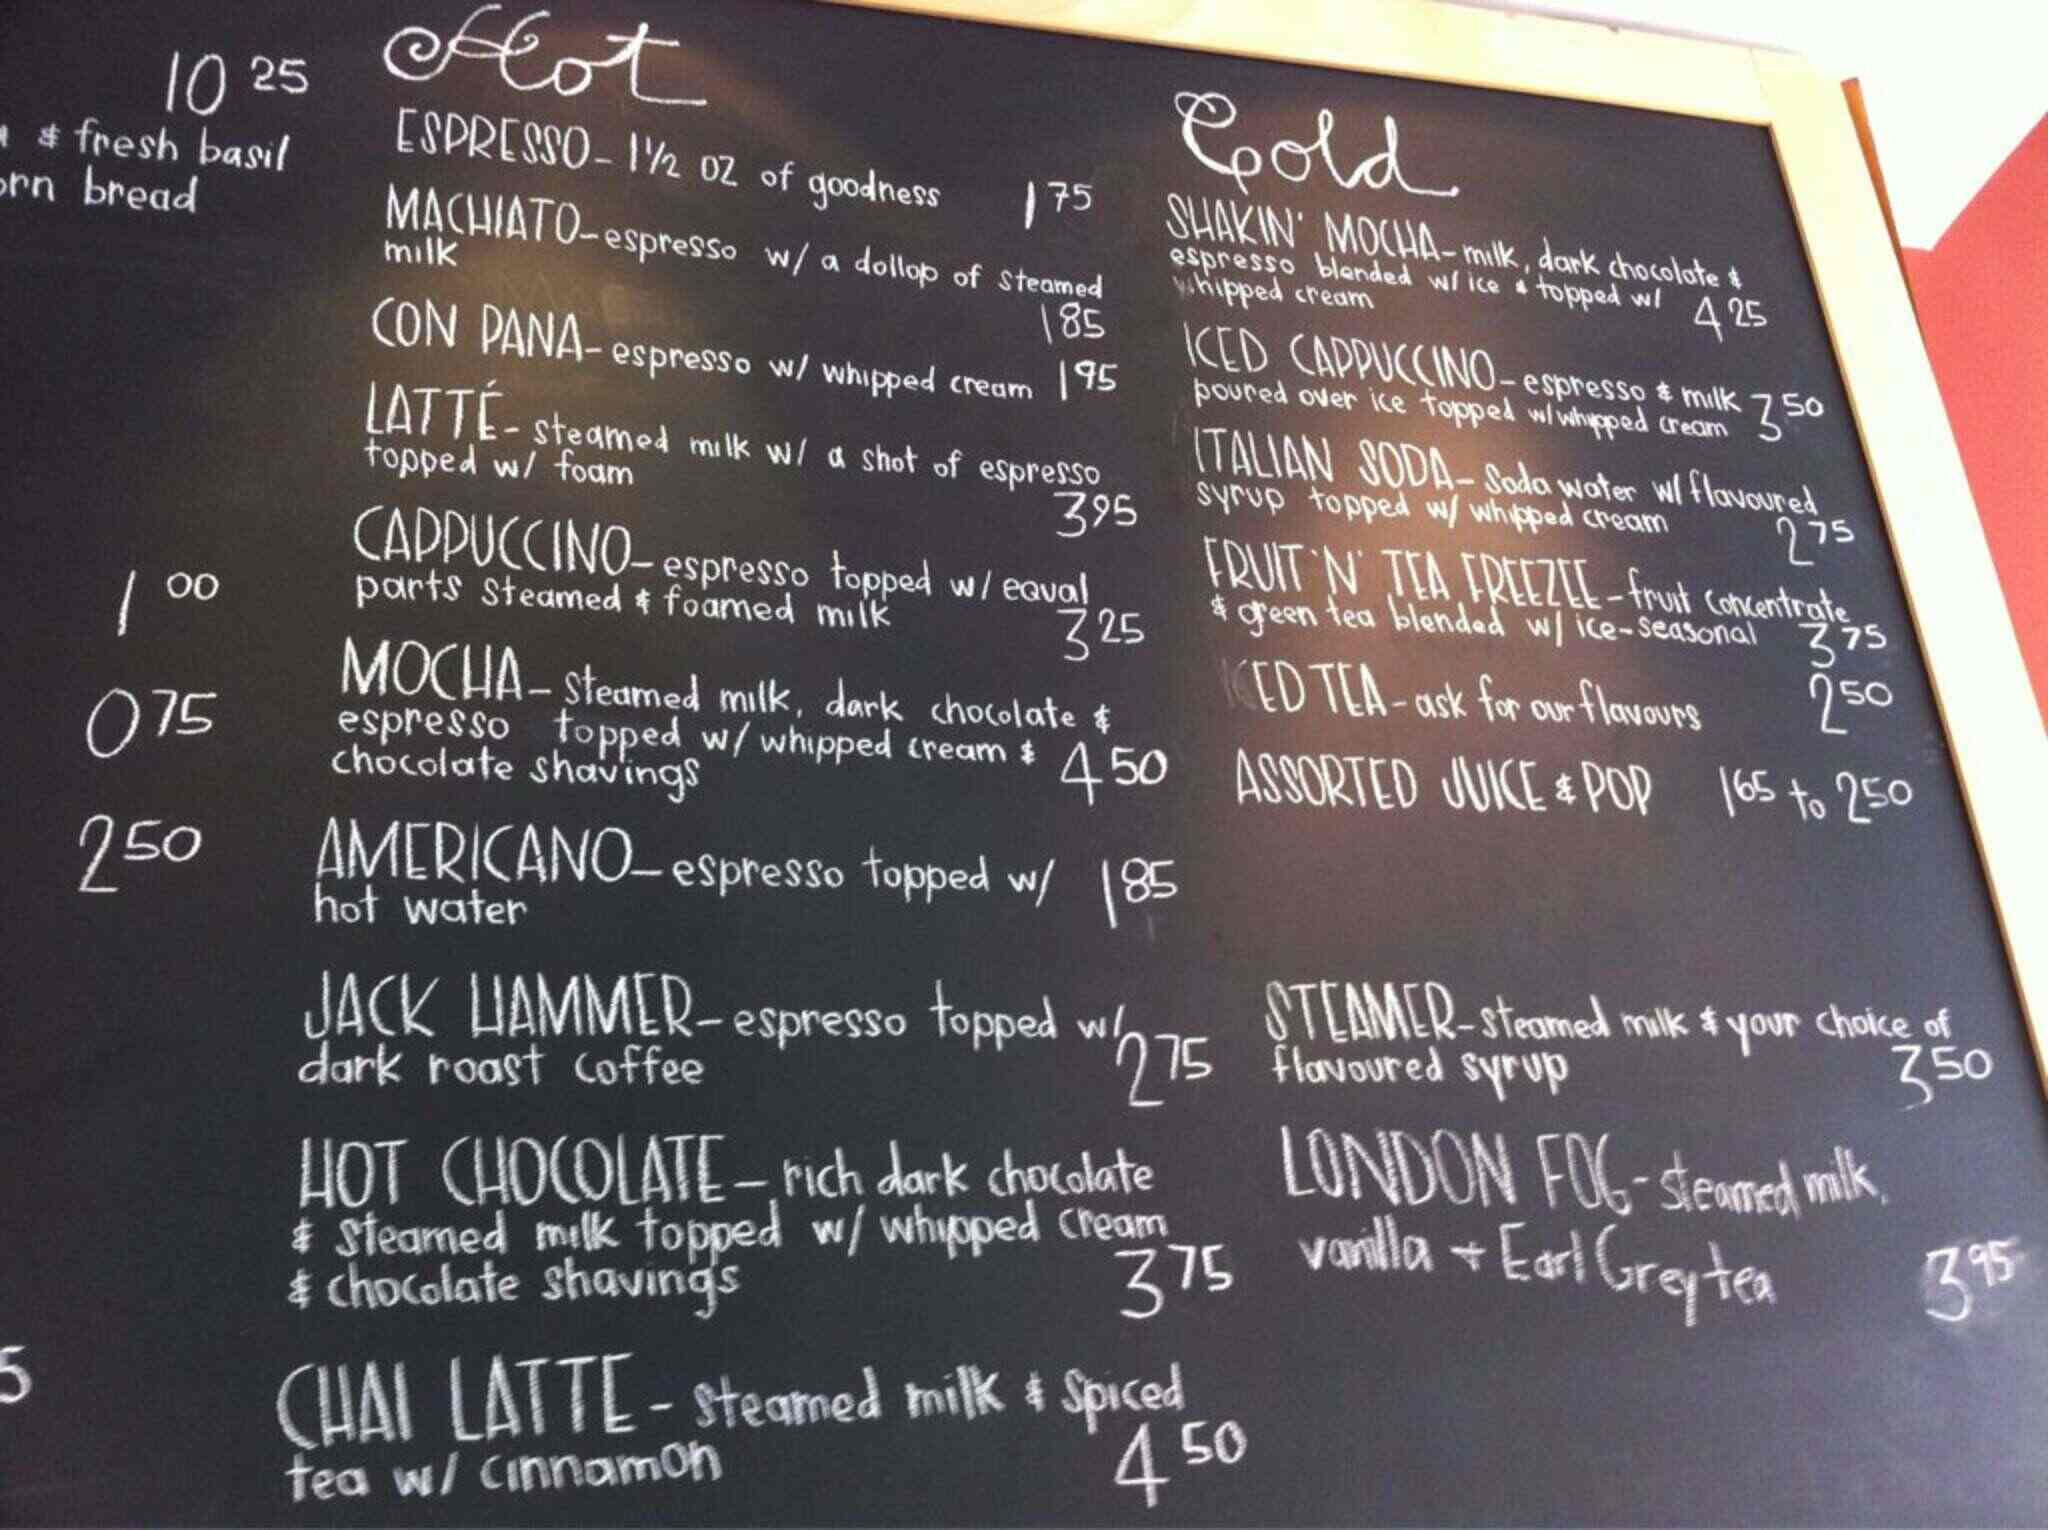 10 25
& fresh basil
orn bread
1 00
0 75
2 50
5
Hot
ESPRESSO - 1 1/2 OZ of goodness 1 75
MACHIATO - espresso w/ a dollop of steamed
milk 1 85
CON PANA - espresso w/ whipped cream 1 95
LATTÉ - steamed milk w/ a shot of espresso
topped w/ foam 3 95
CAPPUCCINO - espresso topped w/ equal
parts steamed & foamed milk 3 25
MOCHA - steamed milk, dark chocolate &
espresso topped w/ whipped cream &
chocolate shavings 4 50
AMERICANO - espresso topped w/ 1 85
hot water
JACK HAMMER - espresso topped w/
dark roast coffee 2 75
HOT CHOCOLATE - rich dark chocolate
& steamed milk topped w/ whipped cream
& chocolate shavings 3 75
CHAI LATTE - steamed milk & spiced
tea w/ cinnamon 4 50
Cold
SHAKIN' MOCHA - milk, dark chocolate &
espresso blended w/ ice & topped w/
whipped cream 4 25
ICED CAPPUCCINO - espresso & milk
poured over ice topped w/ whipped cream 3 50
ITALIAN SODA - Soda water w/ flavoured
syrup topped w/ whipped cream 2 75
FRUIT 'N' TEA FREEZEE - fruit concentrate
& green tea blended w/ ice - seasonal 3 75
ICED TEA - ask for our flavours 2 50
ASSORTED JUICE & POP 1 65 to 2 50
STEAMER - steamed milk & your choice of
flavoured syrup 3 50
LONDON FOG - steamed milk,
vanilla + Earl Grey tea 3 95